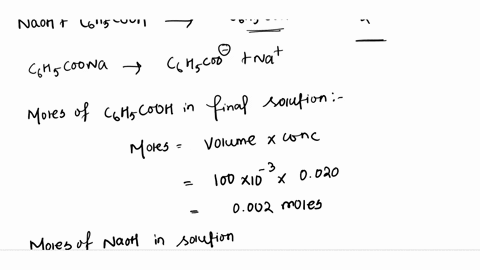 NaOH + C6H5COOH →
C6H5COONa → C6H5COO⊖ + Na+
Moles of C6H5COOH in final solution:-
Moles = Volume × conc
= 100 × 10^-3 × 0.020
= 0.002 moles
Moles of NaOH in solution